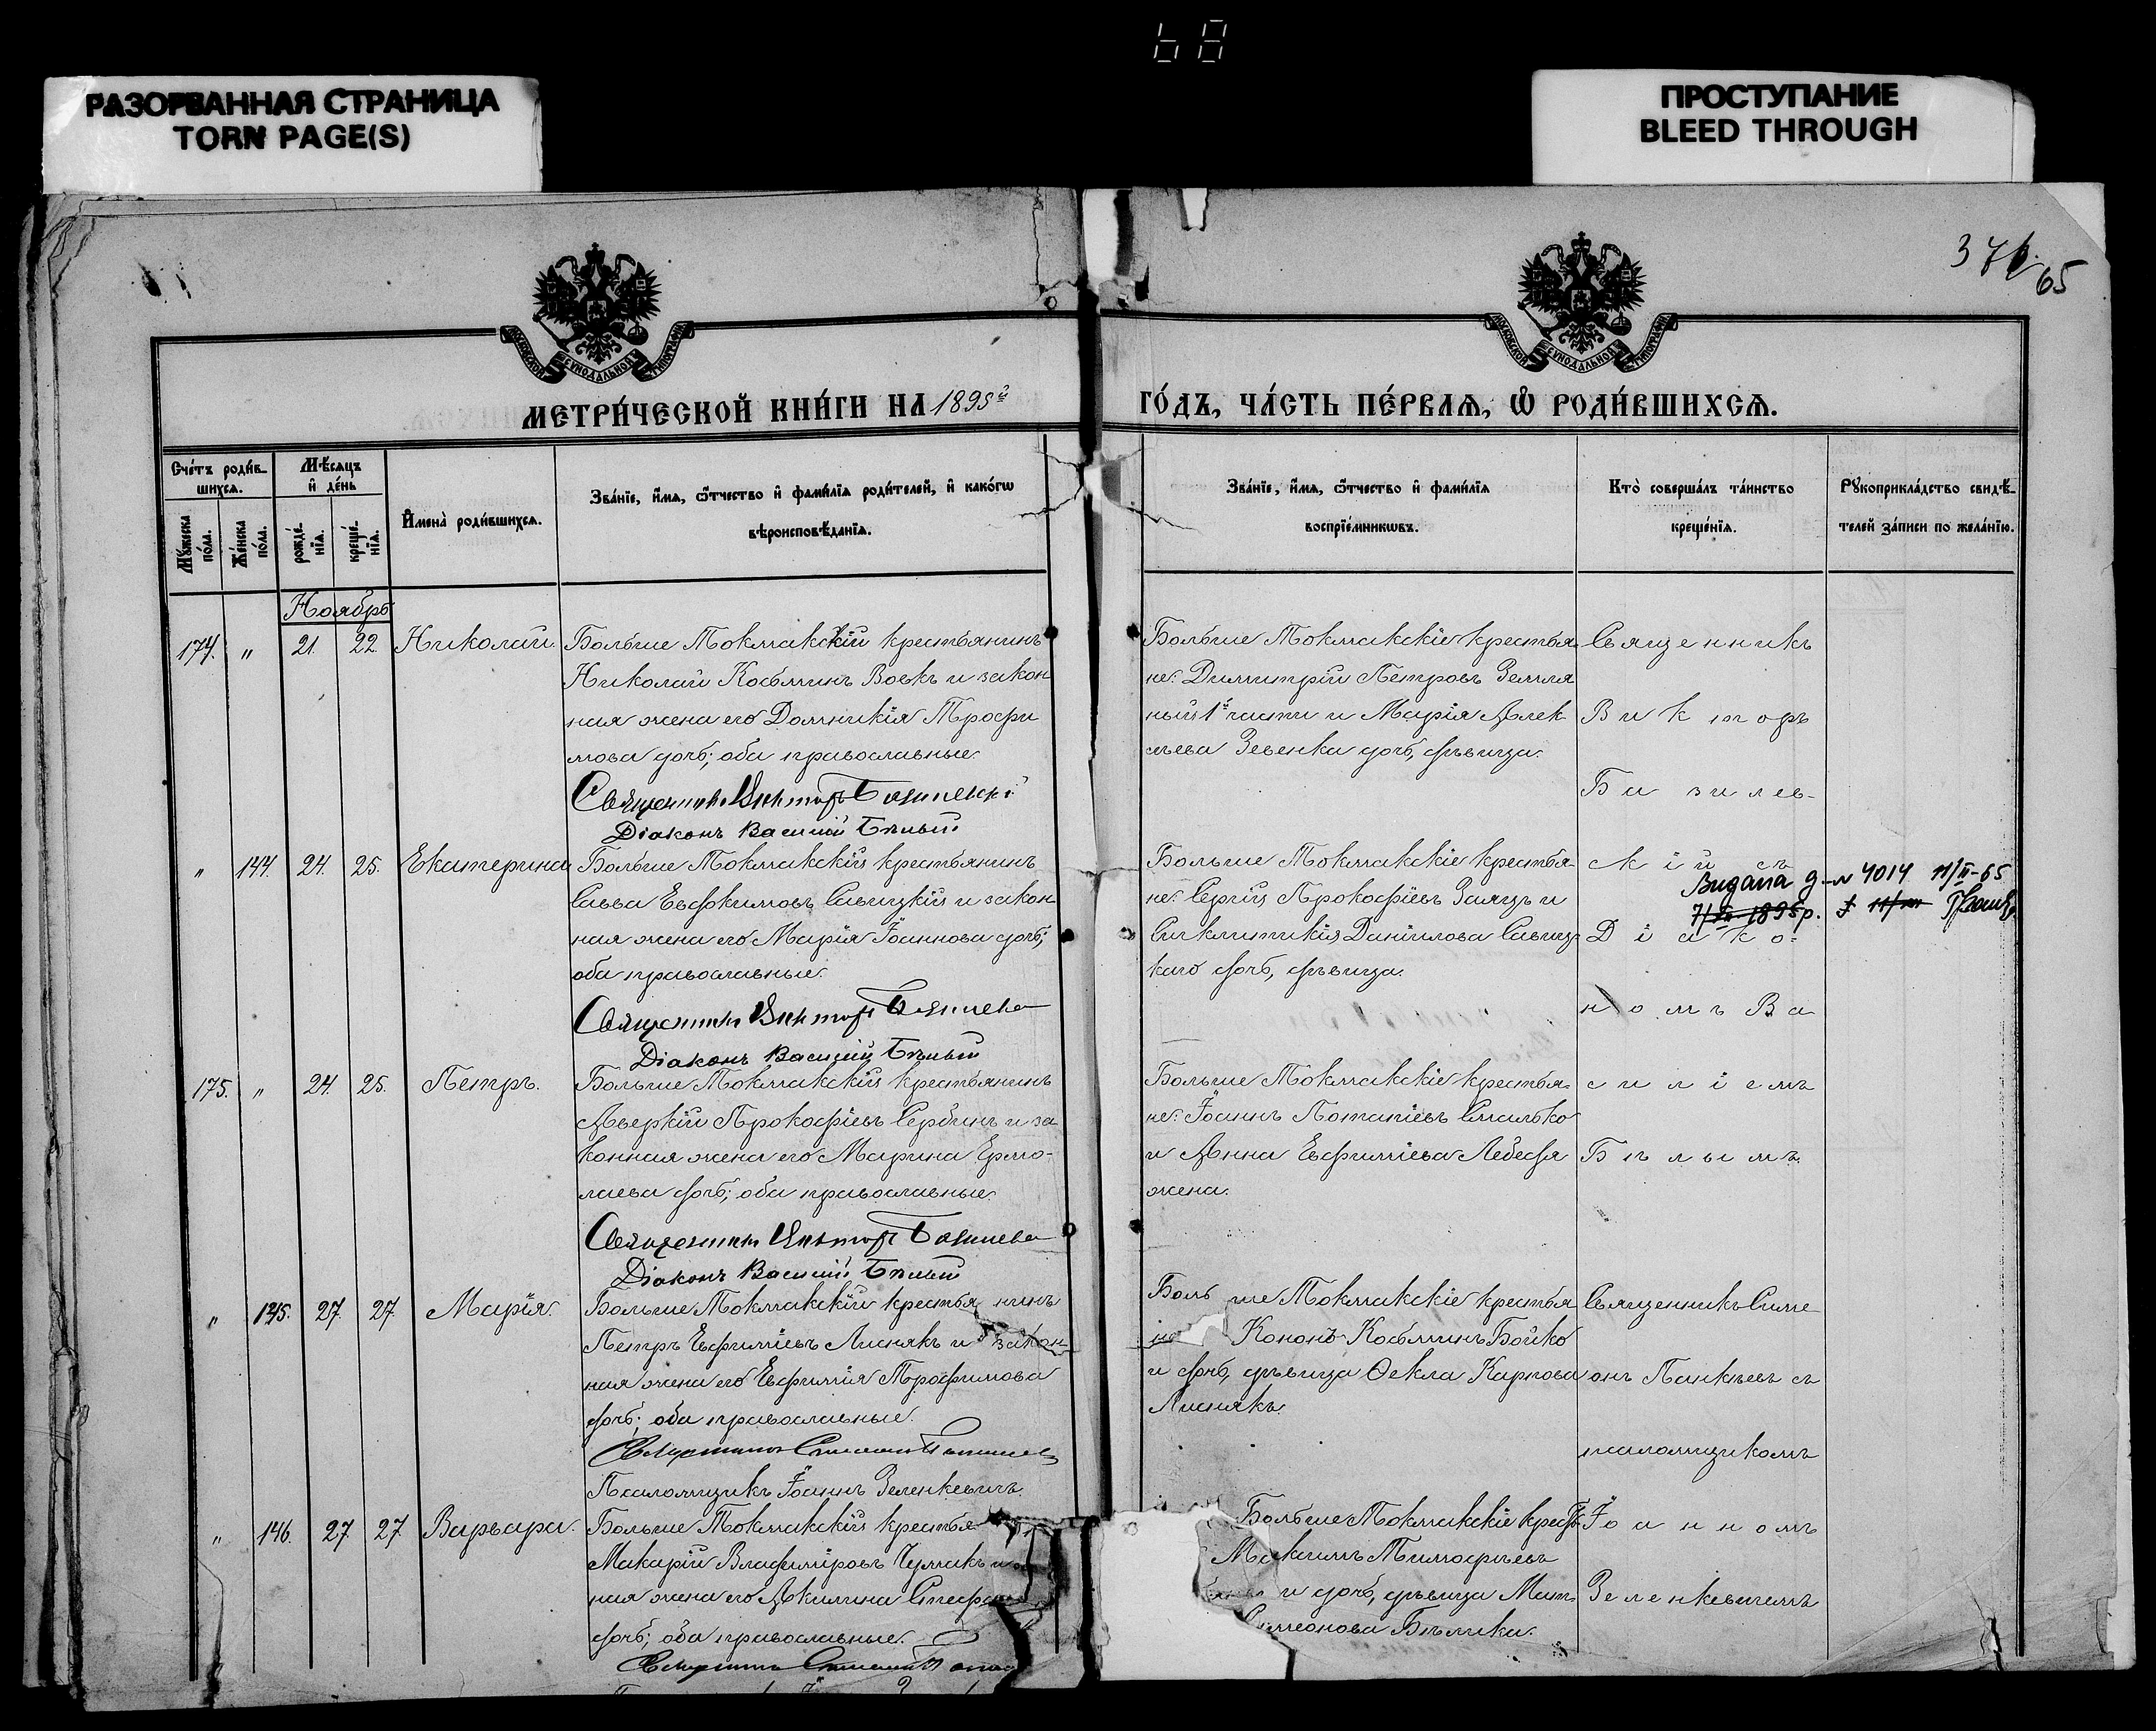 68
РАЗОРВАННАЯ СТРАНИЦА
TORN PAGE(S)
ПРОСТУПАНИЕ
BLEED THROUGH
65
МОСКОВСКОЙ СѴНОДАЛЬНОЙ ТИПОГРАФІИ
МОСКОВСКОЙ СѴНОДАЛЬНОЙ ТИПОГРАФІИ
МЕТРИ́ЧЕСКОЙ КНИ́ГИ НА 1895й
ГО́ДЪ, ЧА́СТЬ ПЕ́РВАЯ, Ѡ҆ РОДИ́ВШИХСЯ.
Сче́тъ роди́в-
шихся.
Мꙋ́жеска по́ла.
Же́нска по́ла.
Мѣ́сяцъ
и҆ де́нь
рожде́-
нїя.
креще́-
нїя.
И҆мена̀ роди́вшихся.
Зва́нїе, и҆́мя, ѻ҆́тчество и҆ фами́лїя роди́телей, и҆ како́гѡ
вѣроисповѣ́данїя.
Зва́нїе, и҆́мя, ѻ҆́тчество и҆ фами́лїя
воспрїе́мникѡвъ.
Кто̀ соверша́лъ та́инство
креще́нїя.
Рꙋкоприкла́дство свидѣ́-
телей за́писи по жела́нїю.
Ноябрь
174. " 21. 22. Николай.
Больше Токмакскій крестьянинъ
Николай Косьминъ Вовкъ и закон
ная жена его Домникія Трофи
мова дочь; оба православные.
Священникъ Викторъ Базилевскі
Діаконъ Василій Бѣлый
Больше Токмакскіе крестья
не: Димитрій Петровъ Земля
ный 1й части и Марія Алек
сѣева Зевенка дочь, дѣвица.
Священникъ
Викторъ
Базилев-
" 144. 24. 25. Екатерина
Больше Токмакскій крестьянинъ
Савва Евфкимовъ Савицкій и закон
ная жена его Марія Іоаннова дочь;
оба православные.
Священникъ Викторъ Базилевс
Діаконъ Василій Бѣлый
Больше Токмакскіе крестья-
не: Сергій Прокофіевъ Заяцъ и
Синклитикія Даніилова Савиц-
каго дочь, дѣвица.
скій съ
Видана 4014 11/II-65
7/XII-1895р.
Діако-
номъ Ва
175. " 24. 25. Петръ.
Больше Токмакскій крестьянинъ
Аверкій Прокофіевъ Сербинъ и за
конная жена его Марина Ермо-
лаева дочь; оба православные.
Священникъ Викторъ Базилевс
Діаконъ Василій Бѣлый
Больше Токмакскіе крестья-
не: Іоаннъ Потапіевъ Смалько
и Анна Евфиміева Лебедя
жена.
силіемъ
Бѣлымъ.
" 145. 27. 27. Марія.
Больше Токмакскій крестья нинъ
Петръ Евфиміевъ Лиснякъ и закон-
ная жена его Евфимія Трофимова
дочь; оба православные.
Псаломщикъ Іоаннъ Зеленкевичъ.
Боль ше Токмакскіе крестья
не Кононъ Косьминъ Бойко
и дочь, дѣвица Ѳекла Карпова
Лиснякъ.
Священникъ Симе
онъ Панкѣевъ съ
псаломщикомъ
" 146. 27. 27. Варвара.
Больше Токмакскій крестья
Макарій Владиміровъ Чумакъ и
ная жена его Акилина Стефа
дочь; оба православные.
Больше Токмакскіе крест
Максимъ Тимофѣевъ
и дочь, дѣвица Мат
имеонова Бѣлика.
Іоанномъ
Зеленкевичемъ